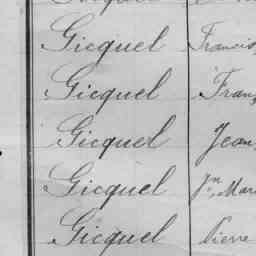 Gicquel Francis
Gicquel Fran
Gicquel Jean
Gicquel Jn. Mar
Gicquel Pierre